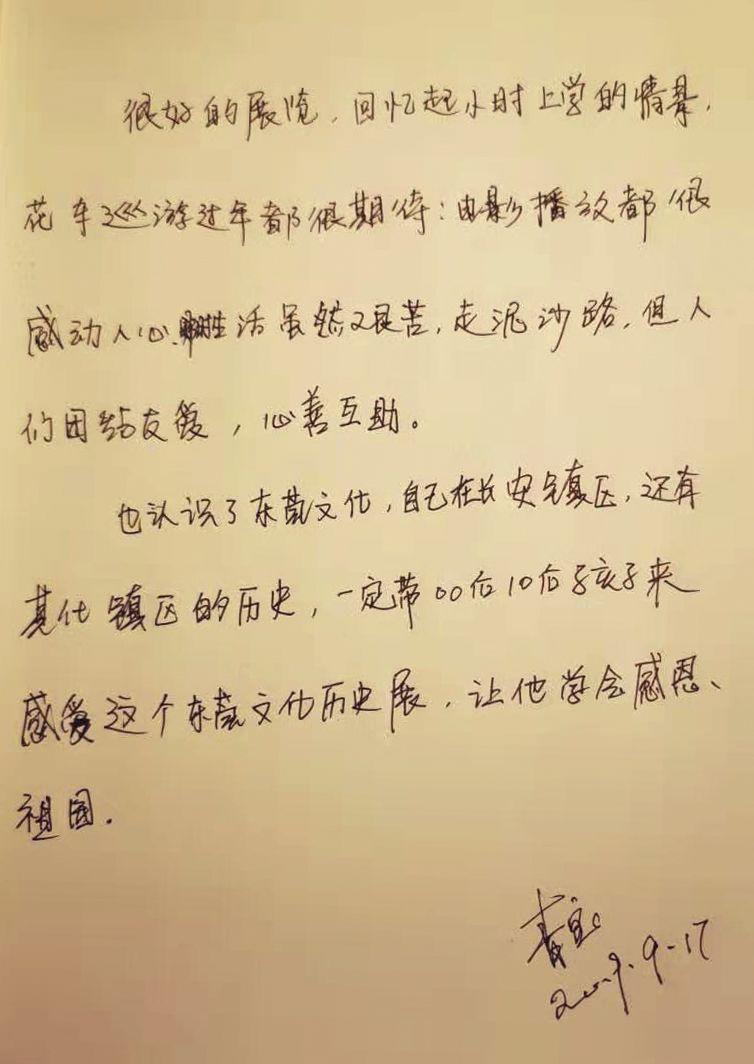 很好的展览，回忆起小时上学的情景，
花车巡游过年都很期待；电影播放都很
感动人心，生活虽然艰苦，走泥沙路，但人
们团结友爱，心善互助。
也认识了东莞文化，自己在长安镇区，还有
其他镇区的历史，一定带00后10后孩子来
感受这个东莞文化历史展，让他学会感恩、
祖国.
9-17